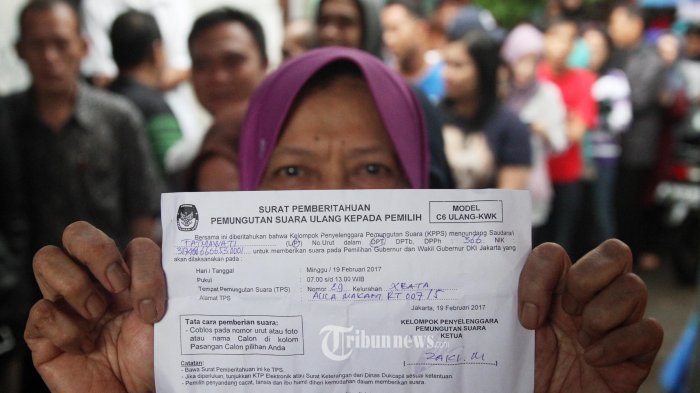 SURAT PEMBERITAHUAN
PEMUNGUTAN SUARA ULANG KEPADA PEMILIH
MODEL
C6 ULANG-KWK
KPU
Bersama ini diberitahukan bahwa Kelompok Penyelenggara Pemungutan Suara (KPPS) mengundang Saudara/i
(L/P) No.Urut dalam DPT/ DPTb, DPPh 366 NIK
untuk memberikan suara pada Pemilihan Gubernur dan Wakil Gubernur DKI Jakarta yang
akan dilaksanakan pada:
Hari / Tanggal : Minggu / 19 Februari 2017
Pukul : 07.00 s/d 13.00 WIB
Tempat Pemungutan Suara (TPS) : Nomor 29 Kelurahan
Alamat TPS : RT 007/5
Jakarta, 19 Februari 2017
Tata cara pemberian suara:
- Coblos pada nomor urut atau foto
atau nama Calon di kolom
Pasangan Calon pilihan Anda
KELOMPOK PENYELENGGARA
PEMUNGUTAN SUARA
KETUA
Tribunnews.com
Catatan:
- Bawa Surat Pemberitahuan ini ke TPS.
- Jika diperlukan, tunjukkan KTP Elektronik atau Surat Keterangan dari Dinas Dukcapil sesuai ketentuan.
- Pemilih penyandang cacat, lansia dan ibu hamil diberi kemudahan dalam memberikan suara.